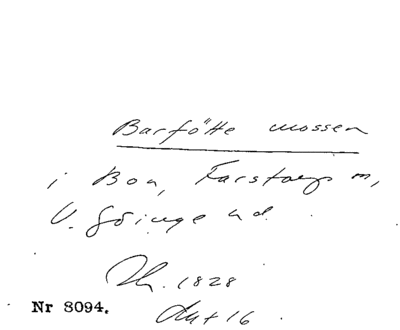 Barfötte mossen
i Boa, Farstorps m,
V. Göinge hd.
1828
Nr 8094.
Akt 16.